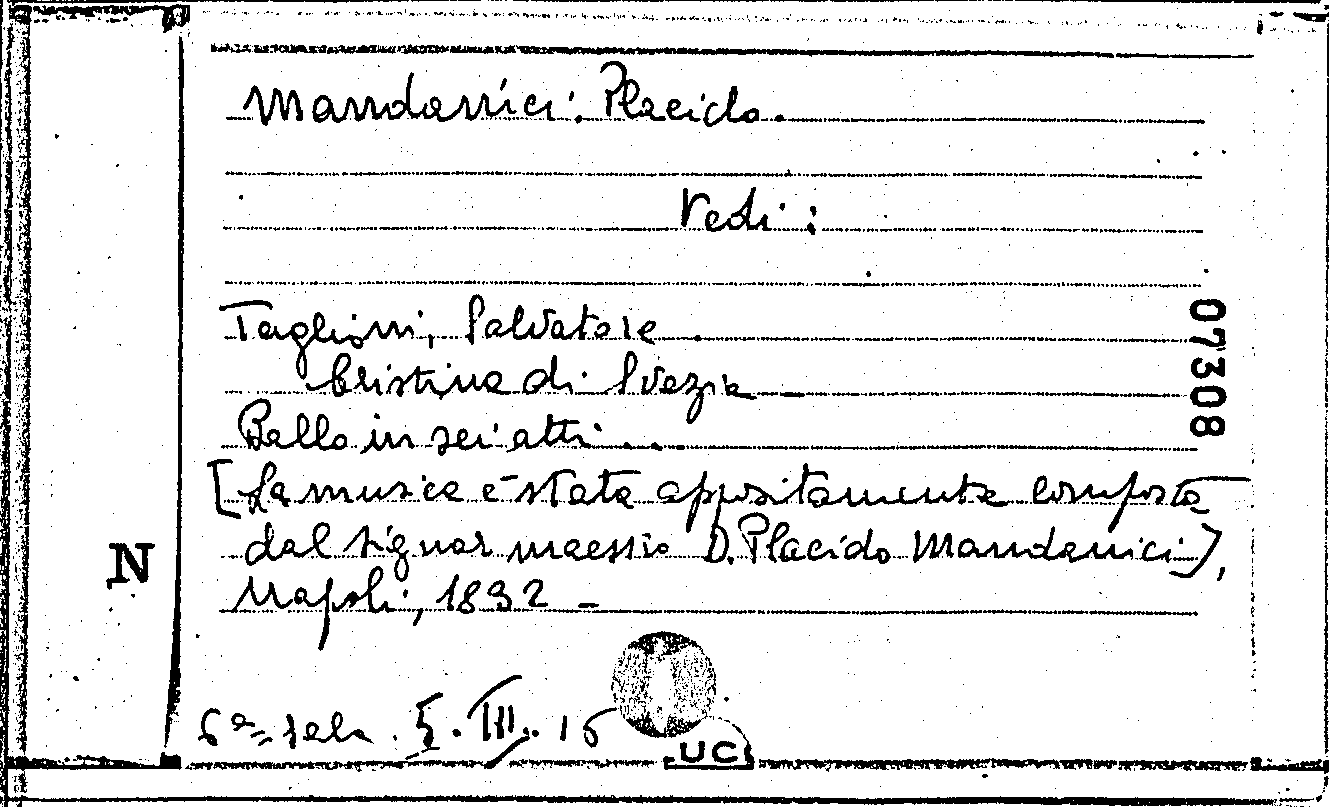 Mandanici, Placido.
Vedi:
Taglioni, Salvatore
Cristina di Svezia
Ballo in sei atti...
[La musica è stata appositamente composta
dal signor maestro D. Placido Mandanici],
Napoli, 1832 –
6ª sala. 5. III. 15
07308
N
UC